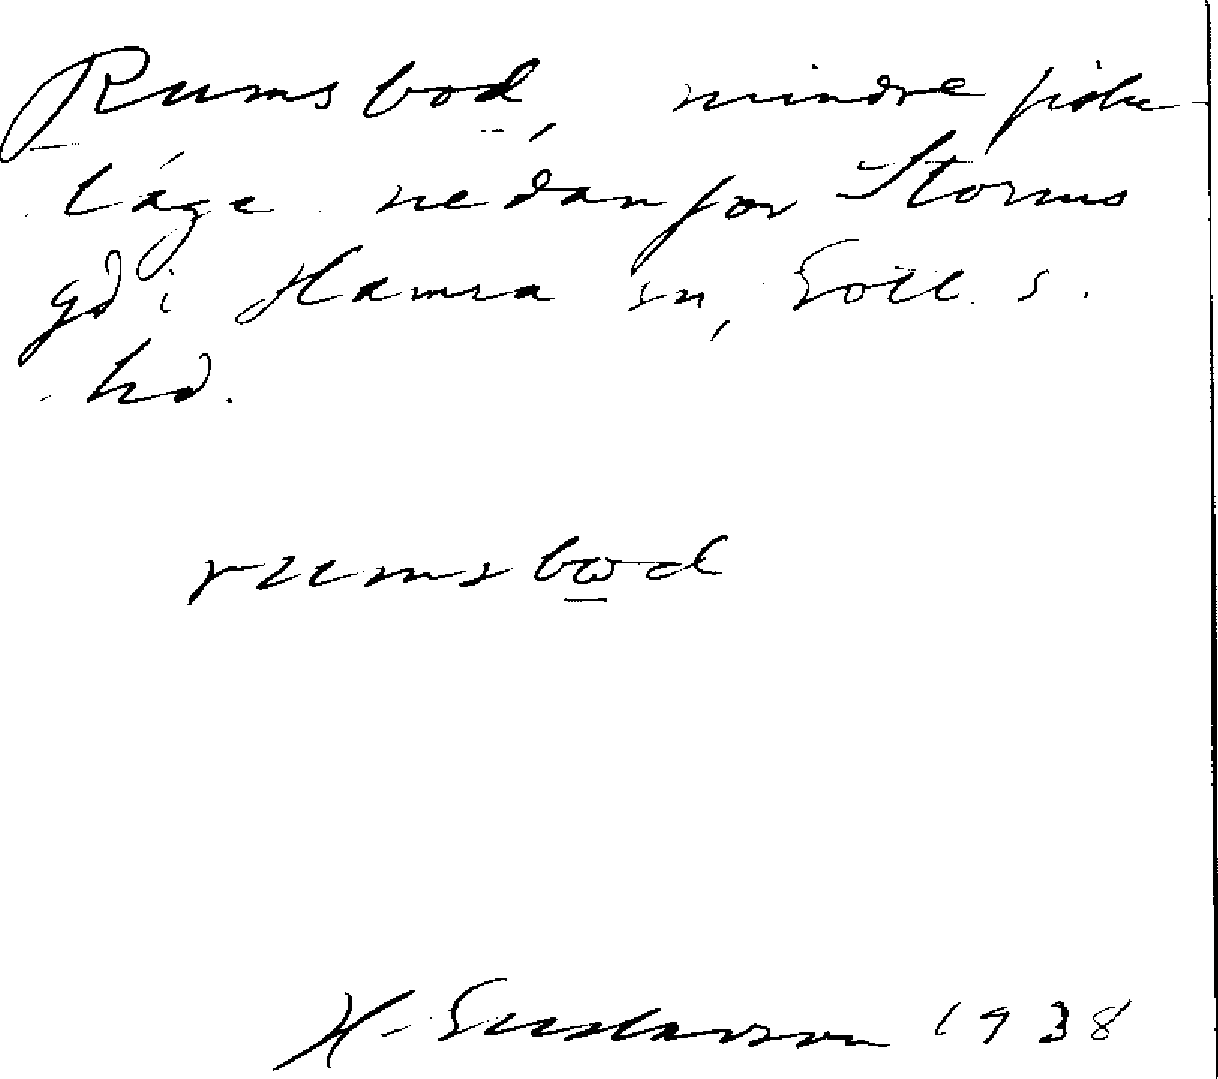 Rumsbod, mindre fiske-
läge nedanför Storms
gd i Hamra sn, Gotl. s.
hd.
rumsbɷd
H. Gustavson 1938